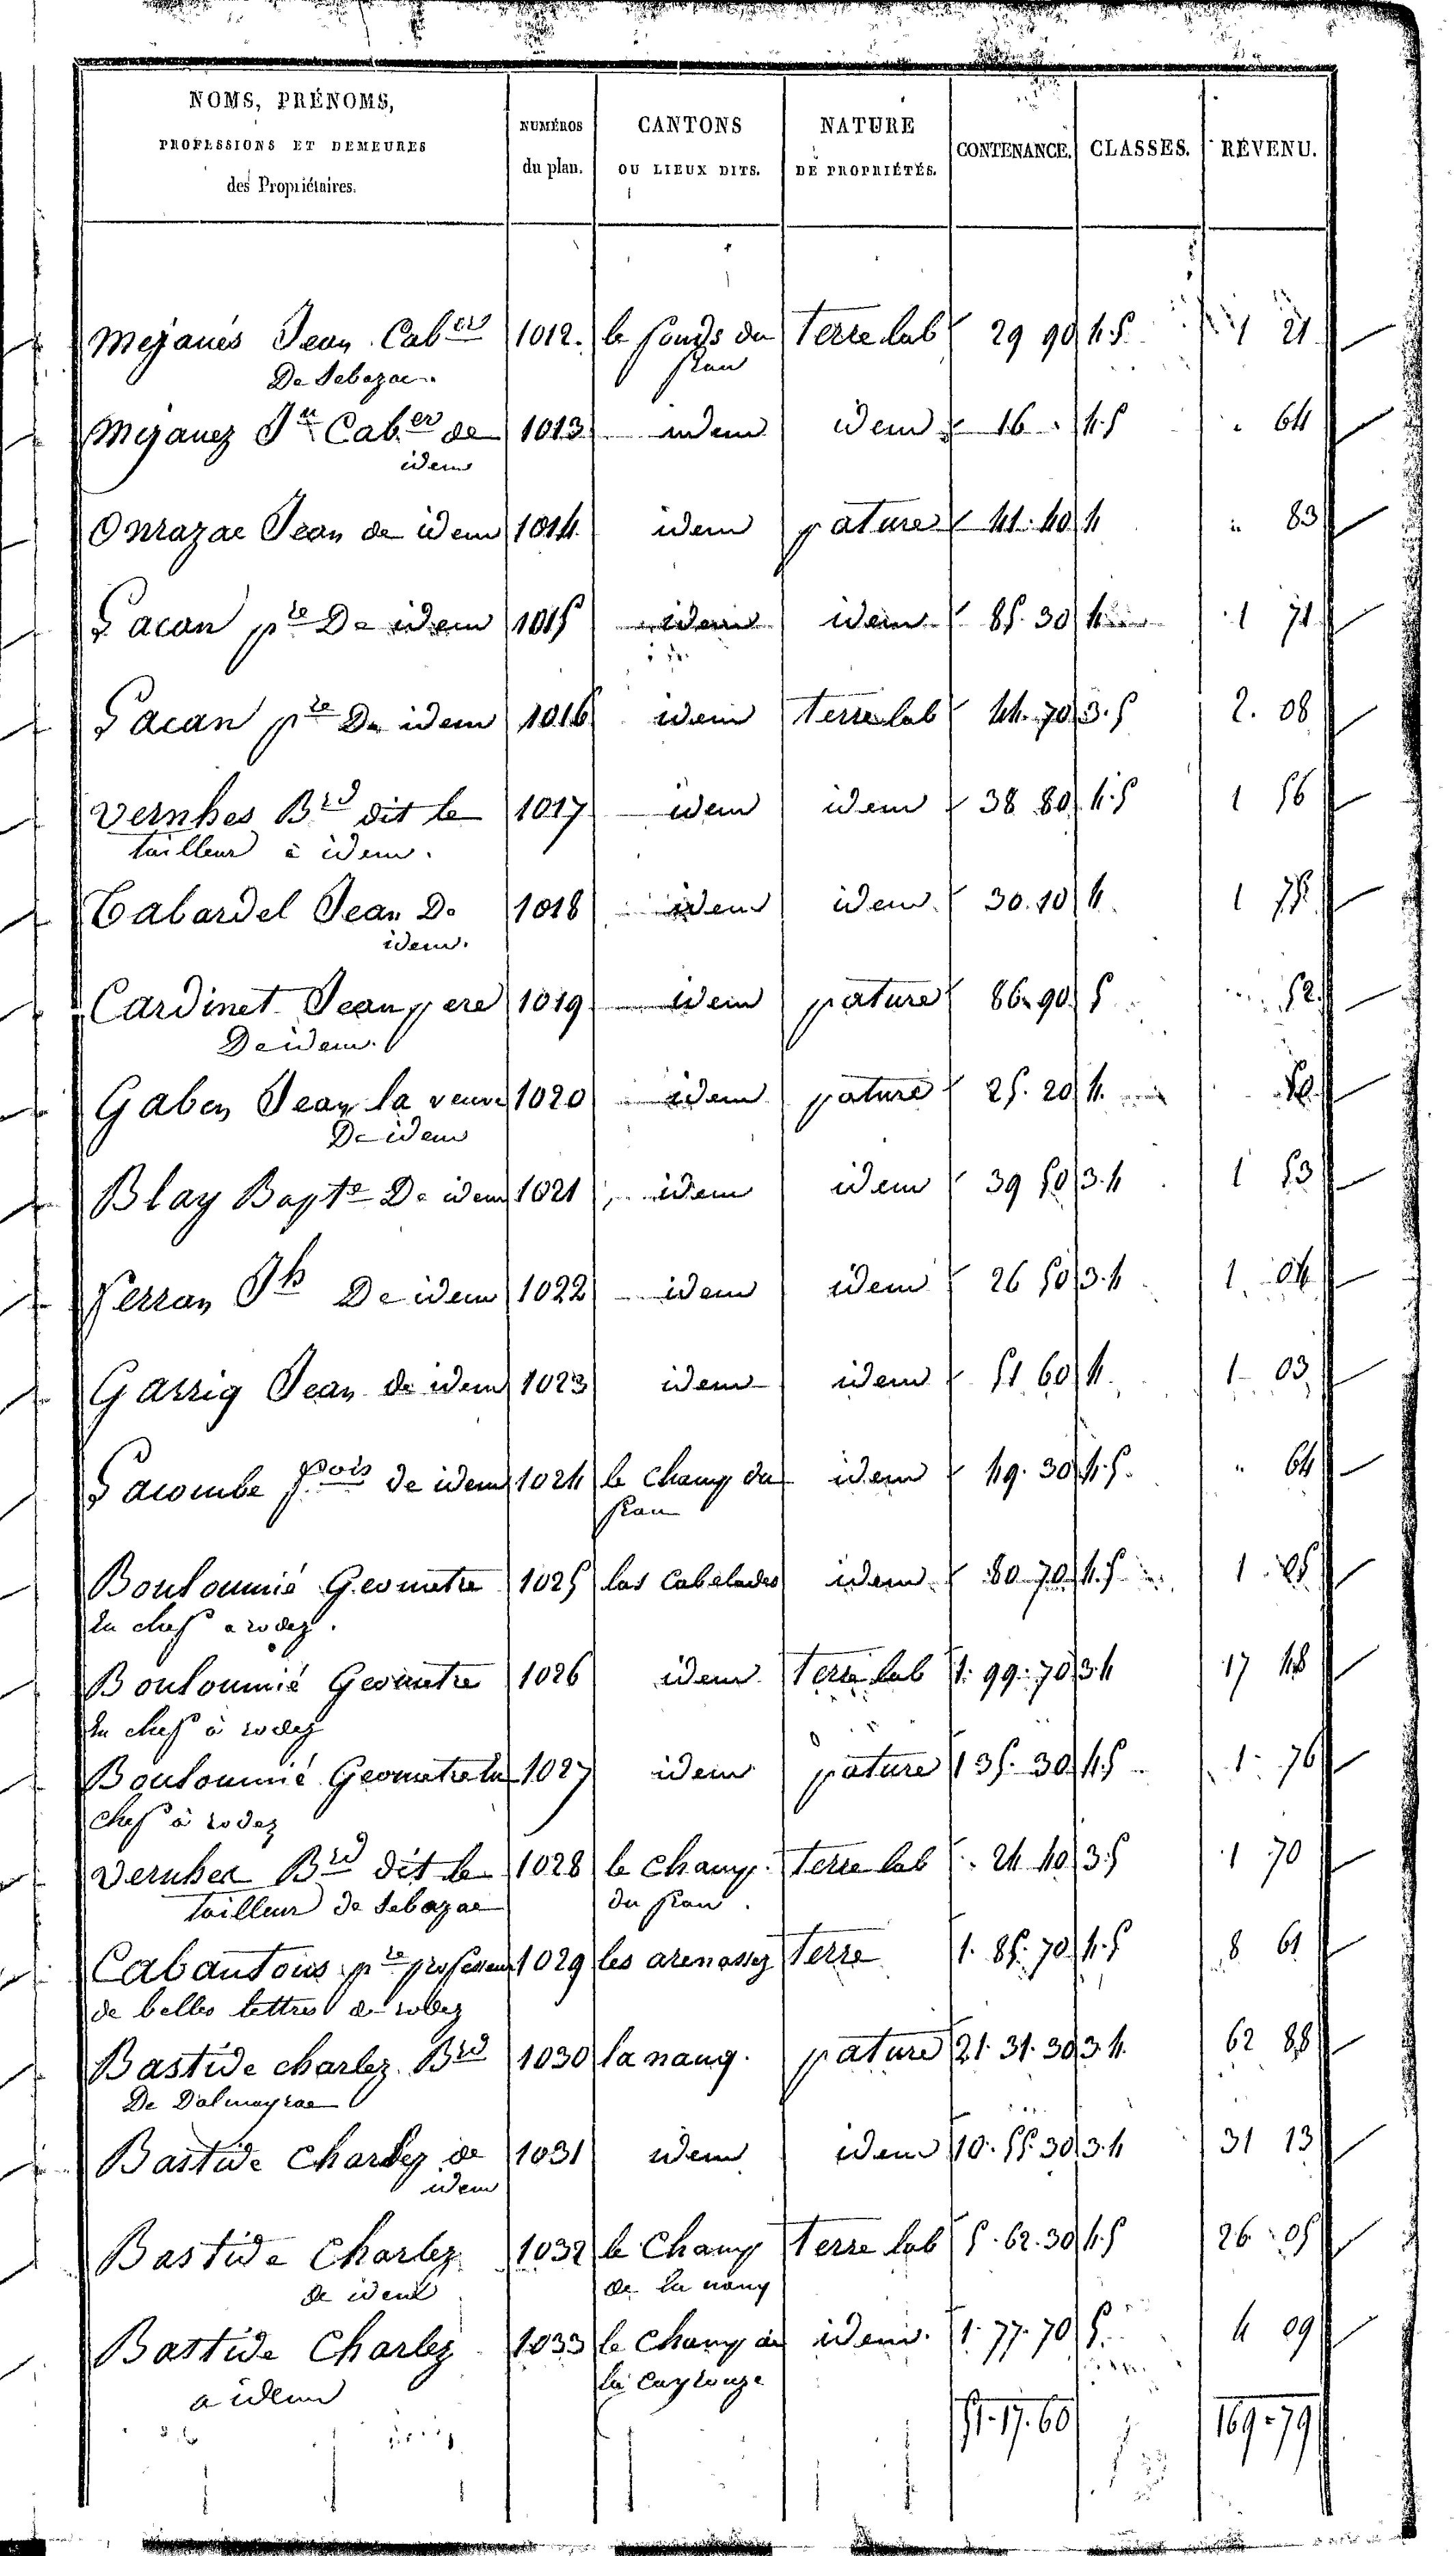 NOMS, PRÉNOMS, PROFESSIONS ET DEMEURES des Propriétaires. NUMÉROS du plan. CANTONS OU LIEUX DITS. NATURE DE PROPRIÉTÉS. CONTENANCE. CLASSES. REVENU.
Mejanés Jean Cab.er 1012. le fonds du Terre lab 29 90 4.5 1 21
De Sebazac
Mejanez Jn Cab.er de 1013 idem idem 16 . 4.5 " 64
idem
Onrazac Jean de idem 1014 idem pature 41.40 4 " 83
Lacan pre De idem 1015 idem idem 85.30 4 1 71
Lacan pre De idem 1016 idem Terre lab 44.70 3.5 2. 08
Vernhes Brd dit le 1017 idem idem 38 80 4.5 1 56
tailleur à idem.
Tabardel Jean De 1018 idem idem 30.10 4 1
idem.
Cardinet Jean pere 1019 idem pature 86.90 5 52
De idem.
Gaben Jean la veuve 1020 idem pature 25.20 4. 50
De idem
Blay Bapte De idem 1021 idem idem 39 50 3.4 1 53
Ferran Jh De idem 1022 idem idem 26 50 3.4 1 04
Garrig Jean de idem 1023 idem idem 51 60 4 1 03
Lacombe fçois de idem 1024 le champ du idem 49.30 4.5. " 64
Bouloumié Geometre 1025 las Cabelades idem 80 70 4.5 1 05
En chef a rodez.
Bouloumié Geometre 1026 idem Terre lab 1.99.70 3.4 17 48
En chef à rodez
Bouloumié Geometre En 1027 idem pature 1 35.30 4.5 1 76
chef à rodez
Vernhes Brd dit le 1028 le champ Terre lab 24 40 3.5 1 70
tailleur de Sebazac du
Cabantous pre professeur 1029 les arenassez Terre 1.85.70 4.5 8 61
de belles lettres de rodez
Bastide charlez Brd 1030 la nauq. pature 21.31.30 3.4. 62 88
De Dalmayrac
Bastide Charlez de 1031 idem idem 10.55.30 3.4 31 13
idem
Bastide Charlez 1032 le Champ Terre lab 5.62.30 4.5 26 05
de idem de la nauq
Bastide Charlez 1033 le Champ de idem. 1.77.70 5. 4 09
a idem la
51.17.60 169.79